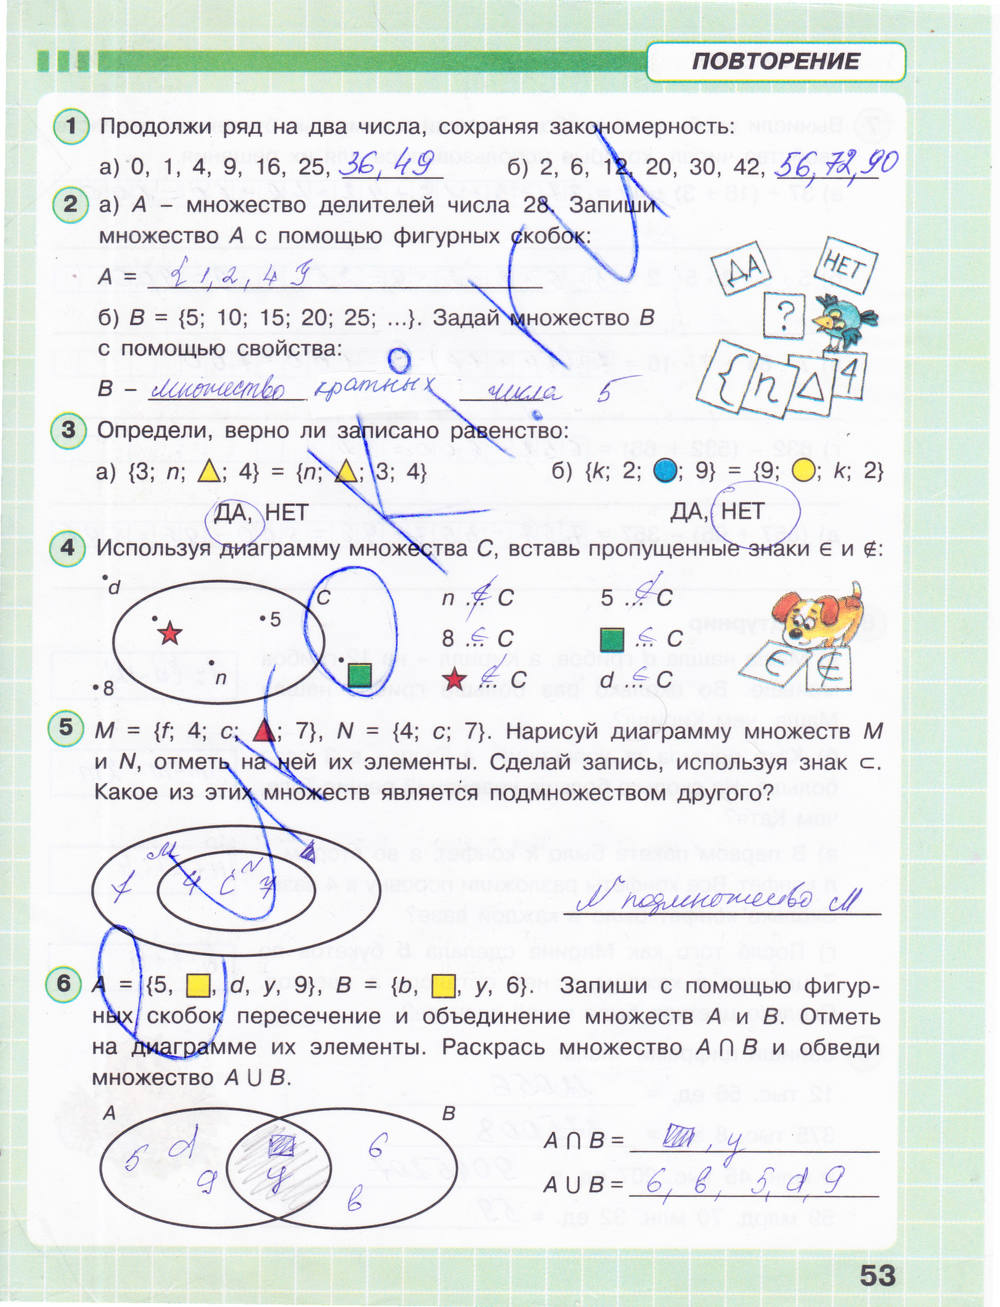 ПОВТОРЕНИЕ
1 Продолжи ряд на два числа, сохраняя закономерность:
а) 0, 1, 4, 9, 16, 25, 36, 49 б) 2, 6, 12, 20, 30, 42, 56, 72, 90
2 а) A – множество делителей числа 28. Запиши
множество A с помощью фигурных скобок:
A = { 1, 2, 4 }
ДА НЕТ
?
{ n Δ 4
б) B = {5; 10; 15; 20; 25; ...}. Задай множество B
с помощью свойства:
B – множество кратных числа 5
3 Определи, верно ли записано равенство:
а) {3; n; ; 4} = {n; ; 3; 4} б) {k; 2; ; 9} = {9; ; k; 2}
ДА, НЕТ ДА, НЕТ
4 Используя диаграмму множества C, вставь пропущенные знаки ∈ и ∉:
d
C n ... ∉ C 5 ... ∉ C
5
8 ... ∈ C ... ∈ C
n
8 ... ∉ C d ... ∈ C
∈ ∉
5 M = {f; 4; c; ; 7}, N = {4; c; 7}. Нарисуй диаграмму множеств M
и N, отметь на ней их элементы. Сделай запись, используя знак ⊂.
Какое из этих множеств является подмножеством другого?
M N
4 c 7
N подмножество M
6 A = {5, , d, y, 9}, B = {b, , y, 6}. Запиши с помощью фигур-
ных скобок пересечение и объединение множеств A и B. Отметь
на диаграмме их элементы. Раскрась множество A ∩ B и обведи
множество A ∪ B.
A B
5 d 9 y 6 b
A ∩ B = , y
A ∪ B = 6, b, 5, d, 9
53